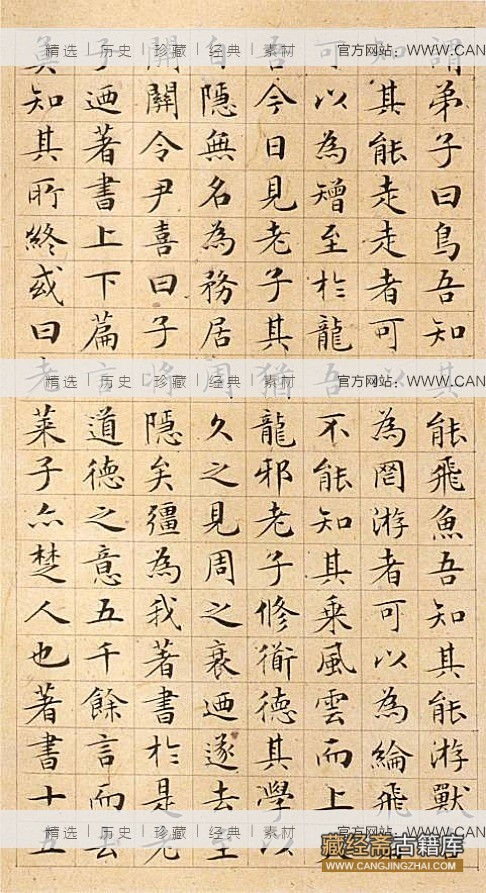 謂弟子曰鳥吾知其能飛魚吾知其能游獸
知其能走走者可以為罔游者可以為綸飛
可以為矰至於龍吾不能知其乘風雲而上
吾今日見老子其猶龍邪老子修衜德其學以
自隱無名為務居周久之見周之衰迺遂去至
關關令尹喜曰子將隱矣彊為我著書於是老
子迺著書上下篇言道德之意五千餘言而去
莫知其所終或曰老萊子亦楚人也著書十五
精选 | 历史 | 珍藏 | 经典 | 素材 官方网站：WWW.CAN
精选 | 历史 | 珍藏 | 经典 | 素材 官方网站：WWW.CAN
精选 | 历史 | 珍藏 | 经典 | 素材 官方网站：WWW.CAN
藏经斋古籍库
WWW.CANGJINGZHAI.COM